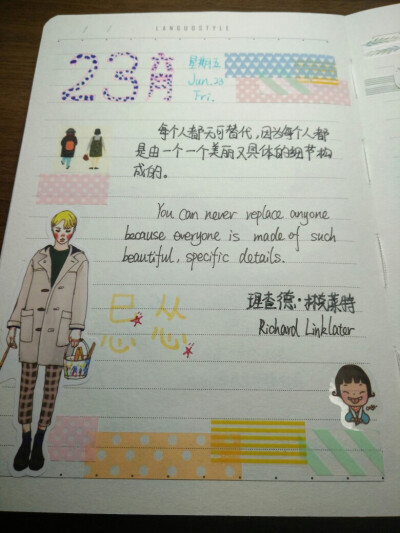 23
星期五
Jun.23
Fri.
每个人都无可替代,因为每个人都
是由一个一个美丽又具体的细节构
成的。
You can never replace anyone
because everyone is made of such
beautiful, specific details.
理查德·林克莱特
Richard Linklater